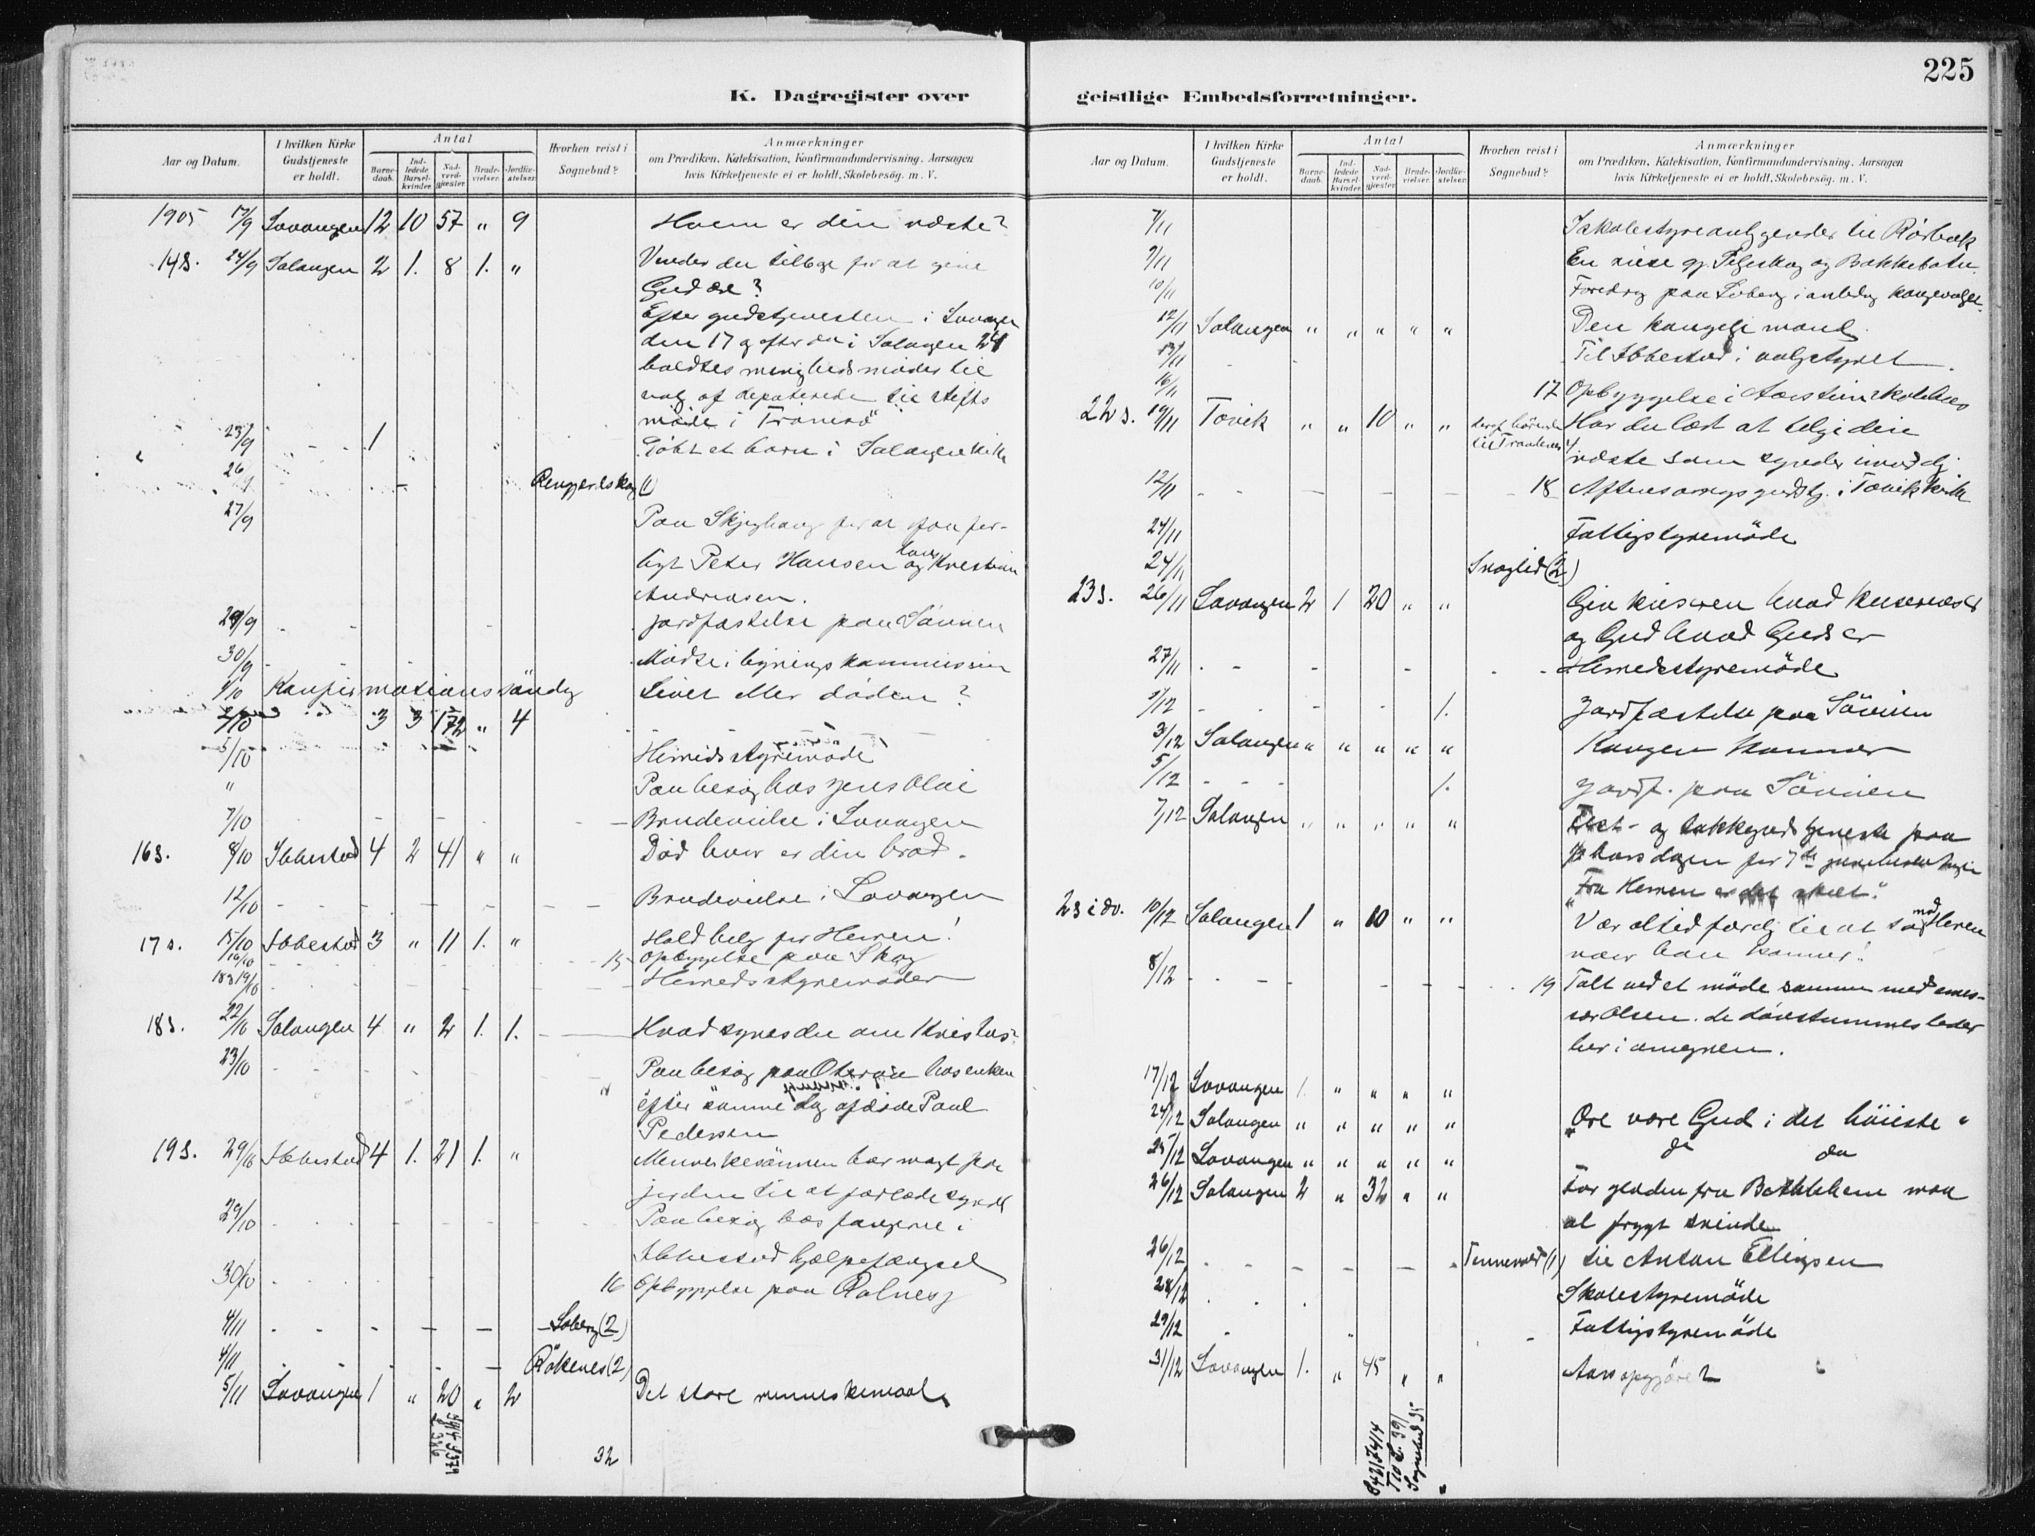 225
K. Dagregister over
geistlige Embedsforretninger.
Aar og Datum.
I hvilken Kirke Gudstjeneste er holdt.
Antal
Barne-daab.
Ind-ledede Barsel-kvinder.
Nad-verd-gjæster.
Brude-vielser.
Jordfæ-stelser.
Hvorhen reist i Sognebud?
Anmærkninger
om Prædiken, Katekisation, Konfirmandundervisning, Aarsagen
hvis Kirketjeneste ei er holdt, Skolebesøg. m. V.
1905 17/9 Lavangen 12 10 57 " 9 Hvem er din næste?
14 s. 24/9 Salangen 2 1. 8 1. " Vender du tilbage for at give
Gud ære?
Efter gudstjenesten i Lavangen
den 17 og efter den i Salangen 24
holdtes menighedsmøder til
valg af deputerede til stifts
møde i Tromsø
25/9 1 Døbt et barn i Salangen kirke
26/9 (1)
27/9 Paa
Peter Hansen og Kristian
Andreasen.
29/9 Jordfæstelse paa Sörinen
30/9 Møde i ligningskommission
1/10 Konfirmationssöndag Livet eller döden?
2/10 3 3 172 " 4
5/10 Herredsstyremöde
" Paa besög hos Jens Olai
7/10 Brudevielse i Lavangen
16 s. 8/10 Ibbestad 4 2 41 " " Död hvor er din brod.
12/10 Brudevielse i Lavangen
17 s. 15/10 Ibbestad 3 " 11 1. " Hold helg for Herren!
16/10 15 Opbyggelse paa Skog
18 & 19/10 Herredsstyremöder
18 s. 22/10 Salangen 4 " 2 1. 1. Hvad synes du om Kristus?
23/10 Paa besög paa hos enken
efter samme dag afdöde Paul
Pedersen
19 s. 29/10 Ibbestad 4 1. 21 1. " Menneskesönnen har magt paa
jorden til at forlade synd
29/10 Paa besög hos fangerne i
Ibbestad hjælpefængsel
30/10 16 Opbyggelse paa Rolnes
4/11 Soberg (2)
4/11 Rökenes (2)
5/11 Lavangen 1 " 20 " 2 Det store menneskemaal
32
Aar og Datum.
I hvilken Kirke Gudstjeneste er holdt.
Antal
Barne-daab.
Ind-ledede Barsel-kvinder.
Nad-verd-gjæster.
Brude-vielser.
Jordfæ-stelser.
Hvorhen reist i Sognebud?
Anmærkninger
om Prædiken, Katekisation, Konfirmandundervisning, Aarsagen
hvis Kirketjeneste ei er holdt, Skolebesøg. m. V.
7/11 I skolestyreanliggender til Rörbæk
9/11 En og Bakkeboten
10/11 Foredrag paa Soberg i anledn kongevalget
12/11 Salangen " " " " " Den kongelige mand.
13/11 Til Ibbestad i valgstyret.
16/11 17 Opbyggelse i
22 s. 19/11 Tovik " " 10 " " Har du læst at tilgi din
til Trondenes næste som synder imod dig
12/11 18 Aftensangsgudstj. i Tovik kirke
24/11 Fattigstyremöde
24/11 (2)
23 s. 26/11 Lavangen 2 1 20 " " Giv keiseren hvad keiserens er
og Gud hvad Guds er
27/11 Herredsstyremöde
1/12 1. Jordfæstelse paa Sörinen
3/12 Salangen " " " " " Kongen kommer
5/12 1. Jordf. paa Sörinen
7/12 Salangen " " " " " Fest- og takkegudstjeneste paa
"Fra Herren er det skeet."
2 s i adv. 10/12 Salangen 1 " 10 " " Vær altid færdig til at møde Herren
naar han kommer!
8/12 19 Talt ved et möde sammen med
Olsen. de dövstummes leder
her i omegnen.
17/12 Lavangen 1. " " " "
24/12 Salangen " " " " " Ære være Gud i det höieste "
25/12 Lavangen " " " " " do do
26/12 Salangen 2 " 32 " " For glæden fra Bethlehem maa
al frygt svinde
26/12 Tennevold (1) til Anton Ellingsen
28/12 Skolestyremöde
29/12 Fattigstyremöde
31/12 Lavangen 1. " 45 " " Aarsopgjöret